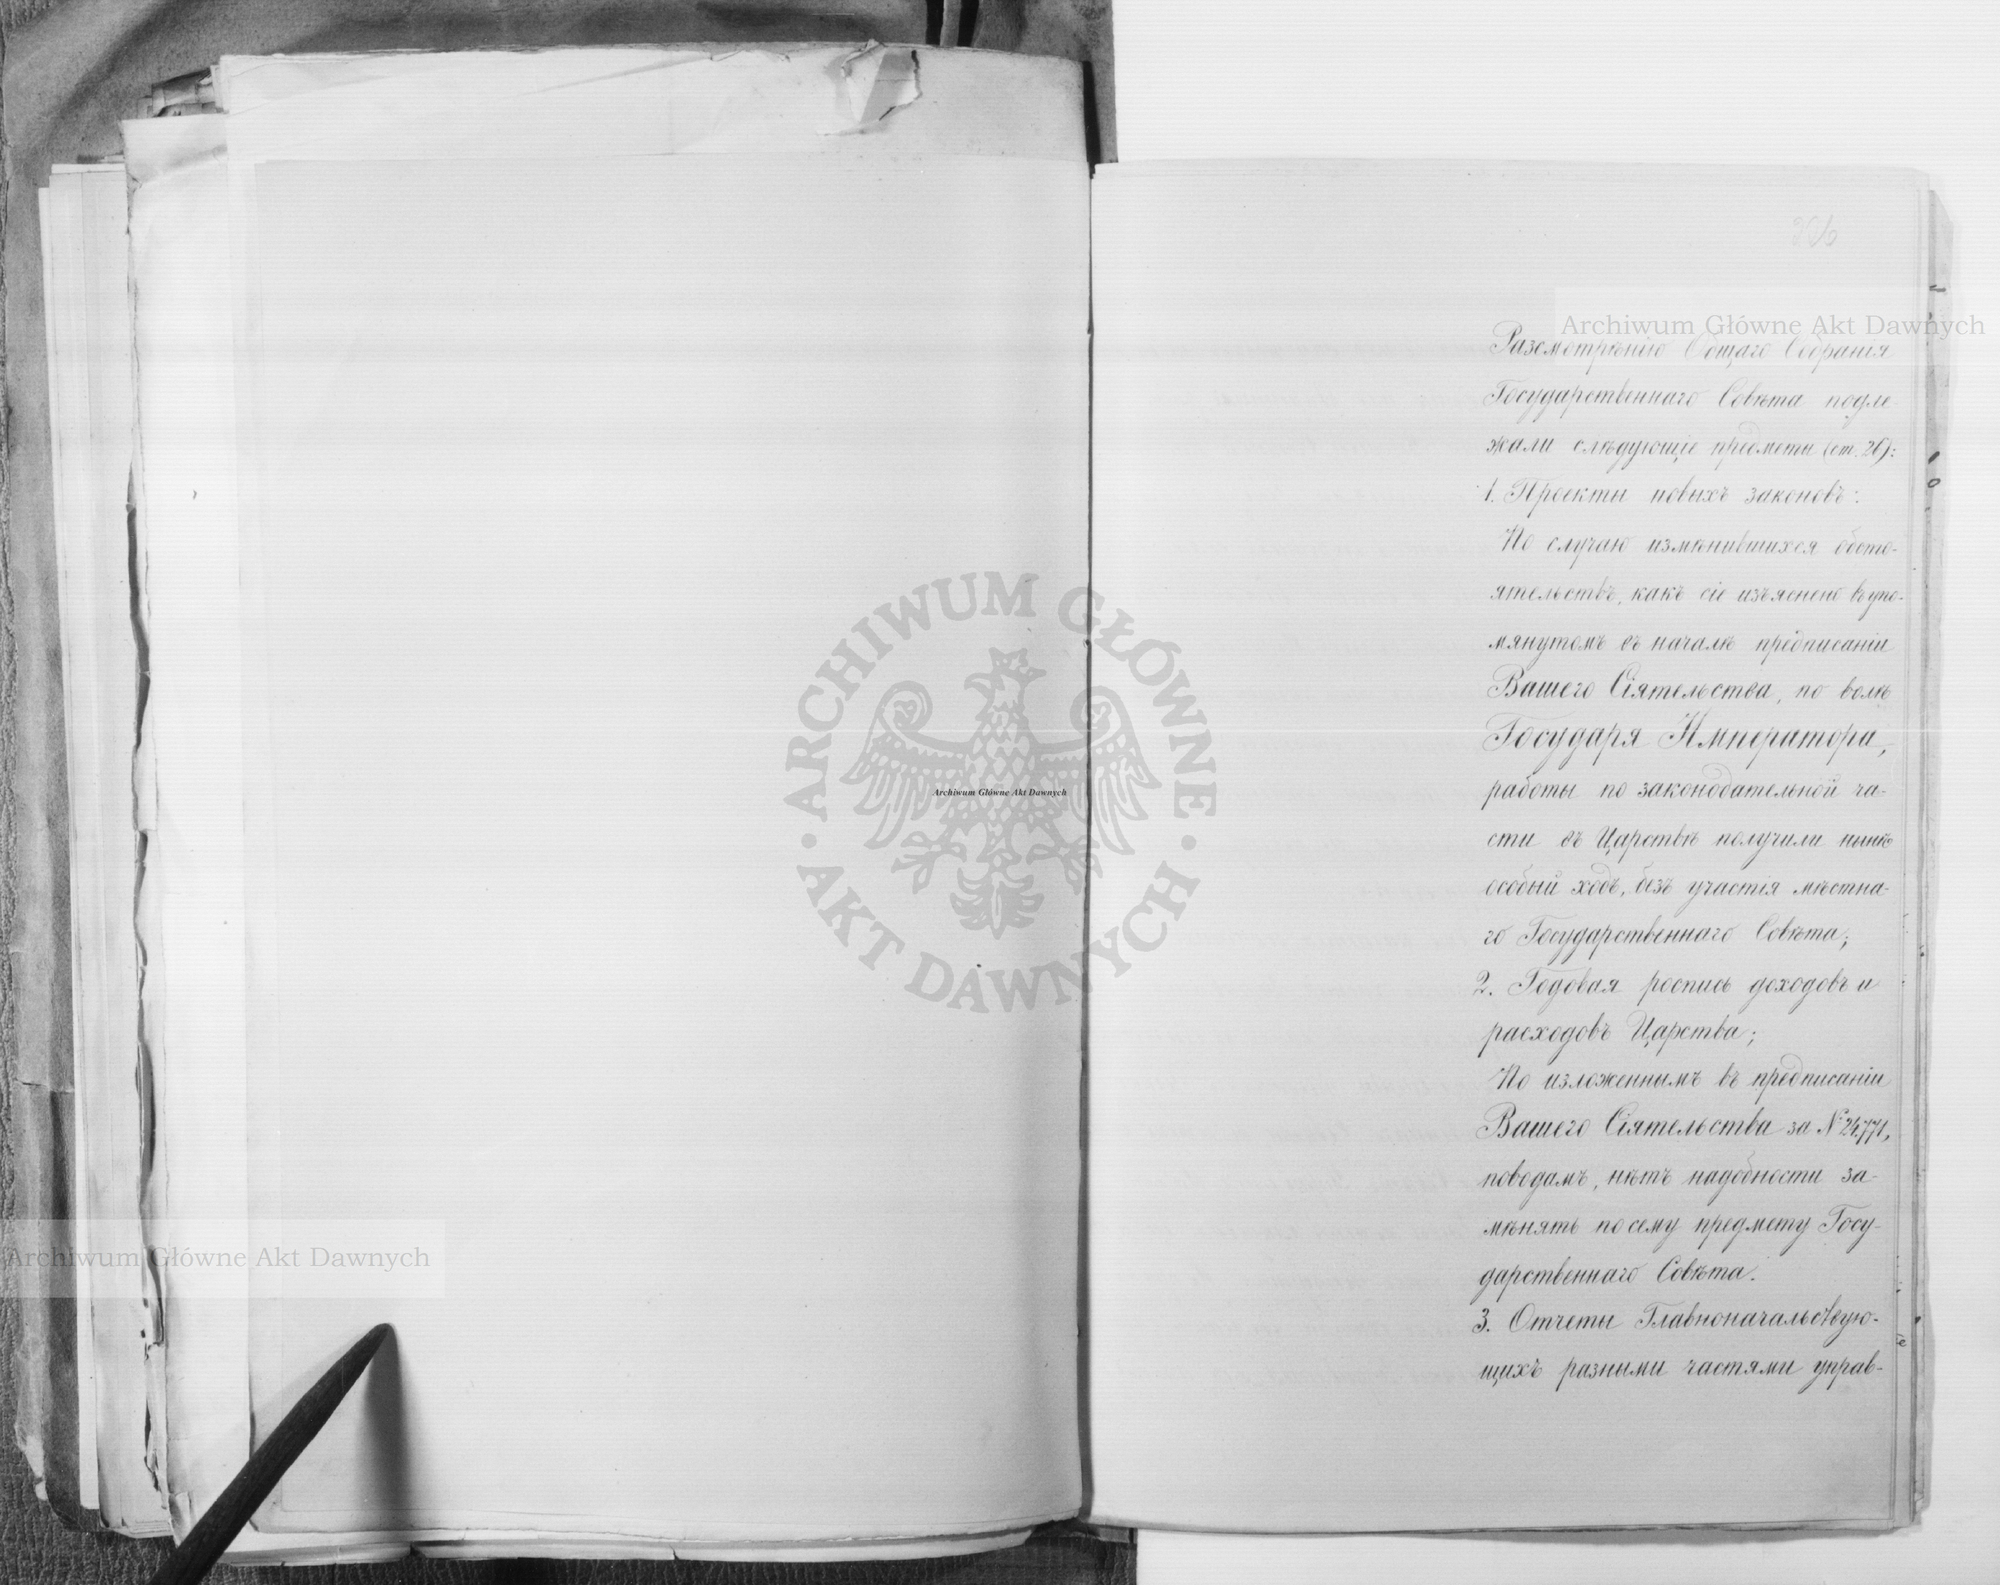 Archiwum Główne Akt Dawnych
Разсмотрѣнію Общаго Собранія
Государственнаго Совѣта подле
жали слѣдующіе предметы (ст. 26):
1. Проекты новыхъ законовъ:
По случаю измѣнившихся обсто-
ятельствъ, какъ сіе изъяснено въ упо-
мянутомъ въ началѣ предписаніи
Вашего Сіятельства, по волѣ
Государя Императора,
работы по законодательной ча-
сти въ Царствѣ получили нынѣ
особый ходъ, безъ участія мѣстна-
го Государственнаго Совѣта;
2. Годовая роспись доходовъ и
расходовъ Царства;
По изложеннымъ въ предписаніи
Вашего Сіятельства за № 24771,
поводамъ, нѣтъ надобности за-
мѣнять по сему предмету Госу-
дарственнаго Совѣта.
3. Отчеты Главноначальствую-
щихъ разными частями управ-
ARCHIWUM GŁÓWNE
AKT DAWNYCH
Archiwum Główne Akt Dawnych
Archiwum Główne Akt Dawnych